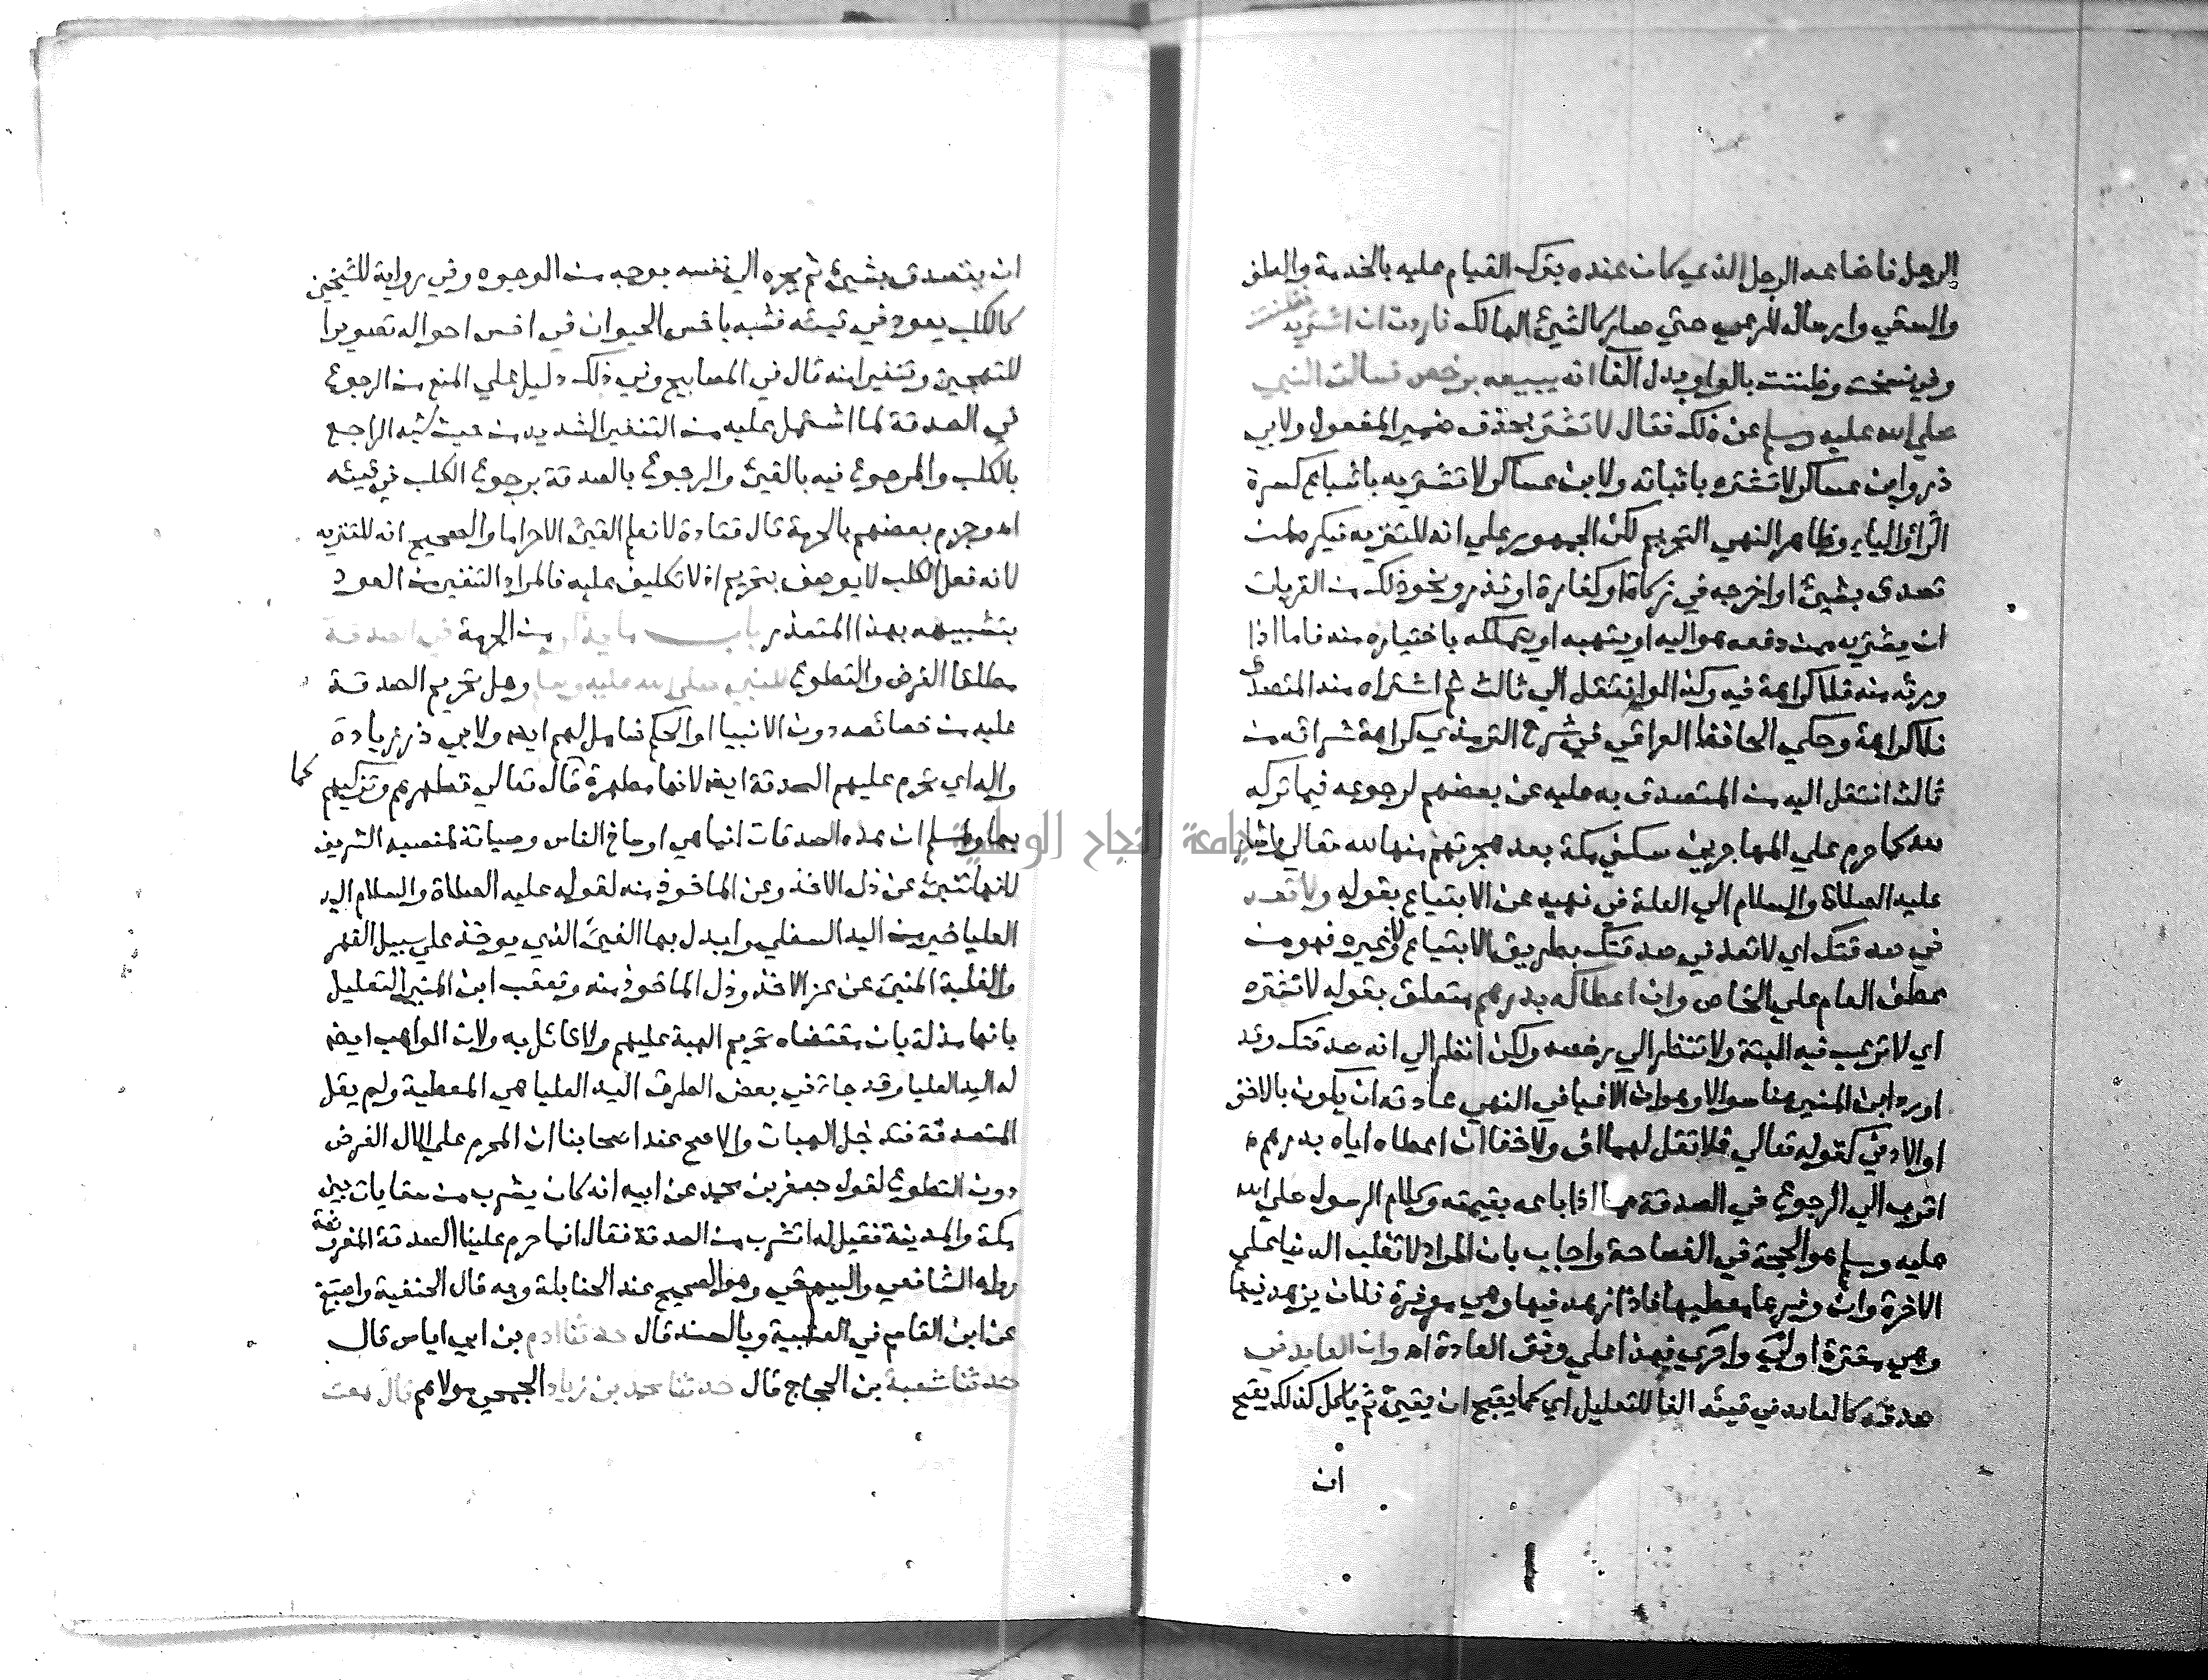 الرجل فاضاعه الرجل الذي كان عنده بترك القيام عليه بالخدمة والعلف
والسقي وارساله للرعي حتي صار كالشيئ الهالك فاردت ان اشتريه فظننت
وفي نسخة وظننت بالواو بدل الفا انه يبيعه برخص فسالت النبي
صلي الله عليه وسلم عن ذلك فقال لا تشتر بحذف ضمير المفعول ولابي
ذر وابن عساكر لا تشتره باثباته ولابن عساكر لا تشتريه باشباع كسرة
الراء والياء وظاهر النهي التحريم لكن الجمهور علي انه للتنزيه فيكره لمن
تصدق بشيئ او اخرجه في زكاة او كفارة او نذر ونحو ذلك من القربات
ان يشتريه ممن دفعه هو اليه او يتهبه او يتملكه باختياره منه فاما اذا
ورثه منه فلا كراهة فيه وكذا لو انتقل الي ثالث ثم اشتراه منه المتصدق
فلا كراهة وحكي الحافظ العراقي في شرح الترمذي كراهة شرائه من
ثالث انتقل اليه من المتصدق به عليه عن بعضهم لرجوعه فيما تركه
لله كما حرم علي المهاجرين سكني مكة بعد هجرتهم منها لله تعالي واشار
عليه الصلاة والسلام الي العلة في نهيه عن الابتياع بقوله ولا تعد
في صدقتك اي لا تعد في صدقتك بطريق الابتياع ولا غيره فهو من
عطف العام علي الخاص وان اعطاكه بدرهم متعلق بقوله لا تشتره
اي لا ترغب فيه البتة ولا تنظر الي رخصه ولكن انظر الي انه صدقتك وقد
اورد ابن المنير هنا سوالا وهو ان الاغيا في النهي عادته ان يكون بالاخف
او الادني كقوله تعالي فلا تقل لهما اف ولا خفا ان اعطاه اياه بدرهم
اقرب الي الرجوع في الصدقة مما اذا باعه بقيمته وكلام الرسول صلي الله
عليه وسلم هو الحجة في الفصاحة واجاب بان المراد لا تغلب الدنيا علي
الاخرة وان وفرها معطيها فاذا زهد فيها وهي موفرة فلان يزهد فيها
وهي مقترة اولي واحري فهذا علي وفق العادة اه وان العايد في
صدقته كالعايد في قيئه الفا للتعليل اي كما يقبح ان يقيئ ثم ياكل كذلك يقبح
ان
ان يتصدق بشيئ ثم يجره الي نفسه بوجه من الوجوه وفي رواية للشيخين
كالكلب يعود في قيئه فشبه باخس الحيوان في اخس احواله تصويرا
للتهجين وتنفيرا منه قال في المصابيح وفي ذلك دليل علي المنع من الرجوع
في الصدقة لما اشتمل عليه من التنفير الشديد من حيث شبه الراجع
بالكلب والمرجوع فيه بالقيئ والرجوع بالصدقة برجوع الكلب في قيئه
اه وجزم بعضهم بالحرمة قال قتادة لا نعلم القيئ الا حراما والصحيح انه للتنزيه
لانه فعل الكلب لا يوصف بتحريم اذ لا تكليف عليه فالمراد التنفير من العود
بتشبيهه بهذا المتعذر باب ما يذكر من الحرمة في الصدقة
مطلقا الفرض والتطوع للنبي صلي الله عليه وسلم وهل تحريم الصدقة
عليه من خصائصه دون الانبيا او الحكم شامل لهم ايضا ولابي ذر زيادة
واله اي تحرم عليهم الصدقة ايضا لانها مطهرة كما قال تعالي تطهرهم وتزكيهم
بها ولمسلم ان هذه الصدقات انما هي اوساخ الناس وصيانة لمنصبه الشريف
لانها تنبئ عن ذل الاخذ وعز الماخوذ منه لقوله عليه الصلاة والسلام اليد
العليا خير من اليد السفلي وابدل بها الفيئ الذي يوخذ علي سبيل القهر
والغلبة المنبئ عن عز الاخذ وذل الماخوذ منه وتعقب ابن المنير التعليل
بانها مذلة بان مقتضاه تحريم الهبة عليهم ولا قائل به ولان الواهب ايضا
له اليد العليا وقد جاء في بعض الطرق اليد العليا هي المعطية ولم يقل
المتصدقة فتدخل الهبات والاصح عند اصحابنا ان المحرم علي الال الفرض
دون التطوع لقول جعفر بن محمد عن ابيه انه كان يشرب من سقايات بين
مكة والمدينة فقيل له اتشرب من الصدقة فقال انما حرم علينا الصدقة المفروضة
رواه الشافعي والبيهقي وهو الصحيح عند الحنابلة وبه قال الحنفية واصبغ
عن ابن القاسم في العتبية وبالسند قال حدثنا ادم بن ابي اياس قال
حدثنا شعبة بن الحجاج قال حدثنا محمد بن زياد الجمحي مولاهم قال سمعت
جامعة النجاح الوطنية